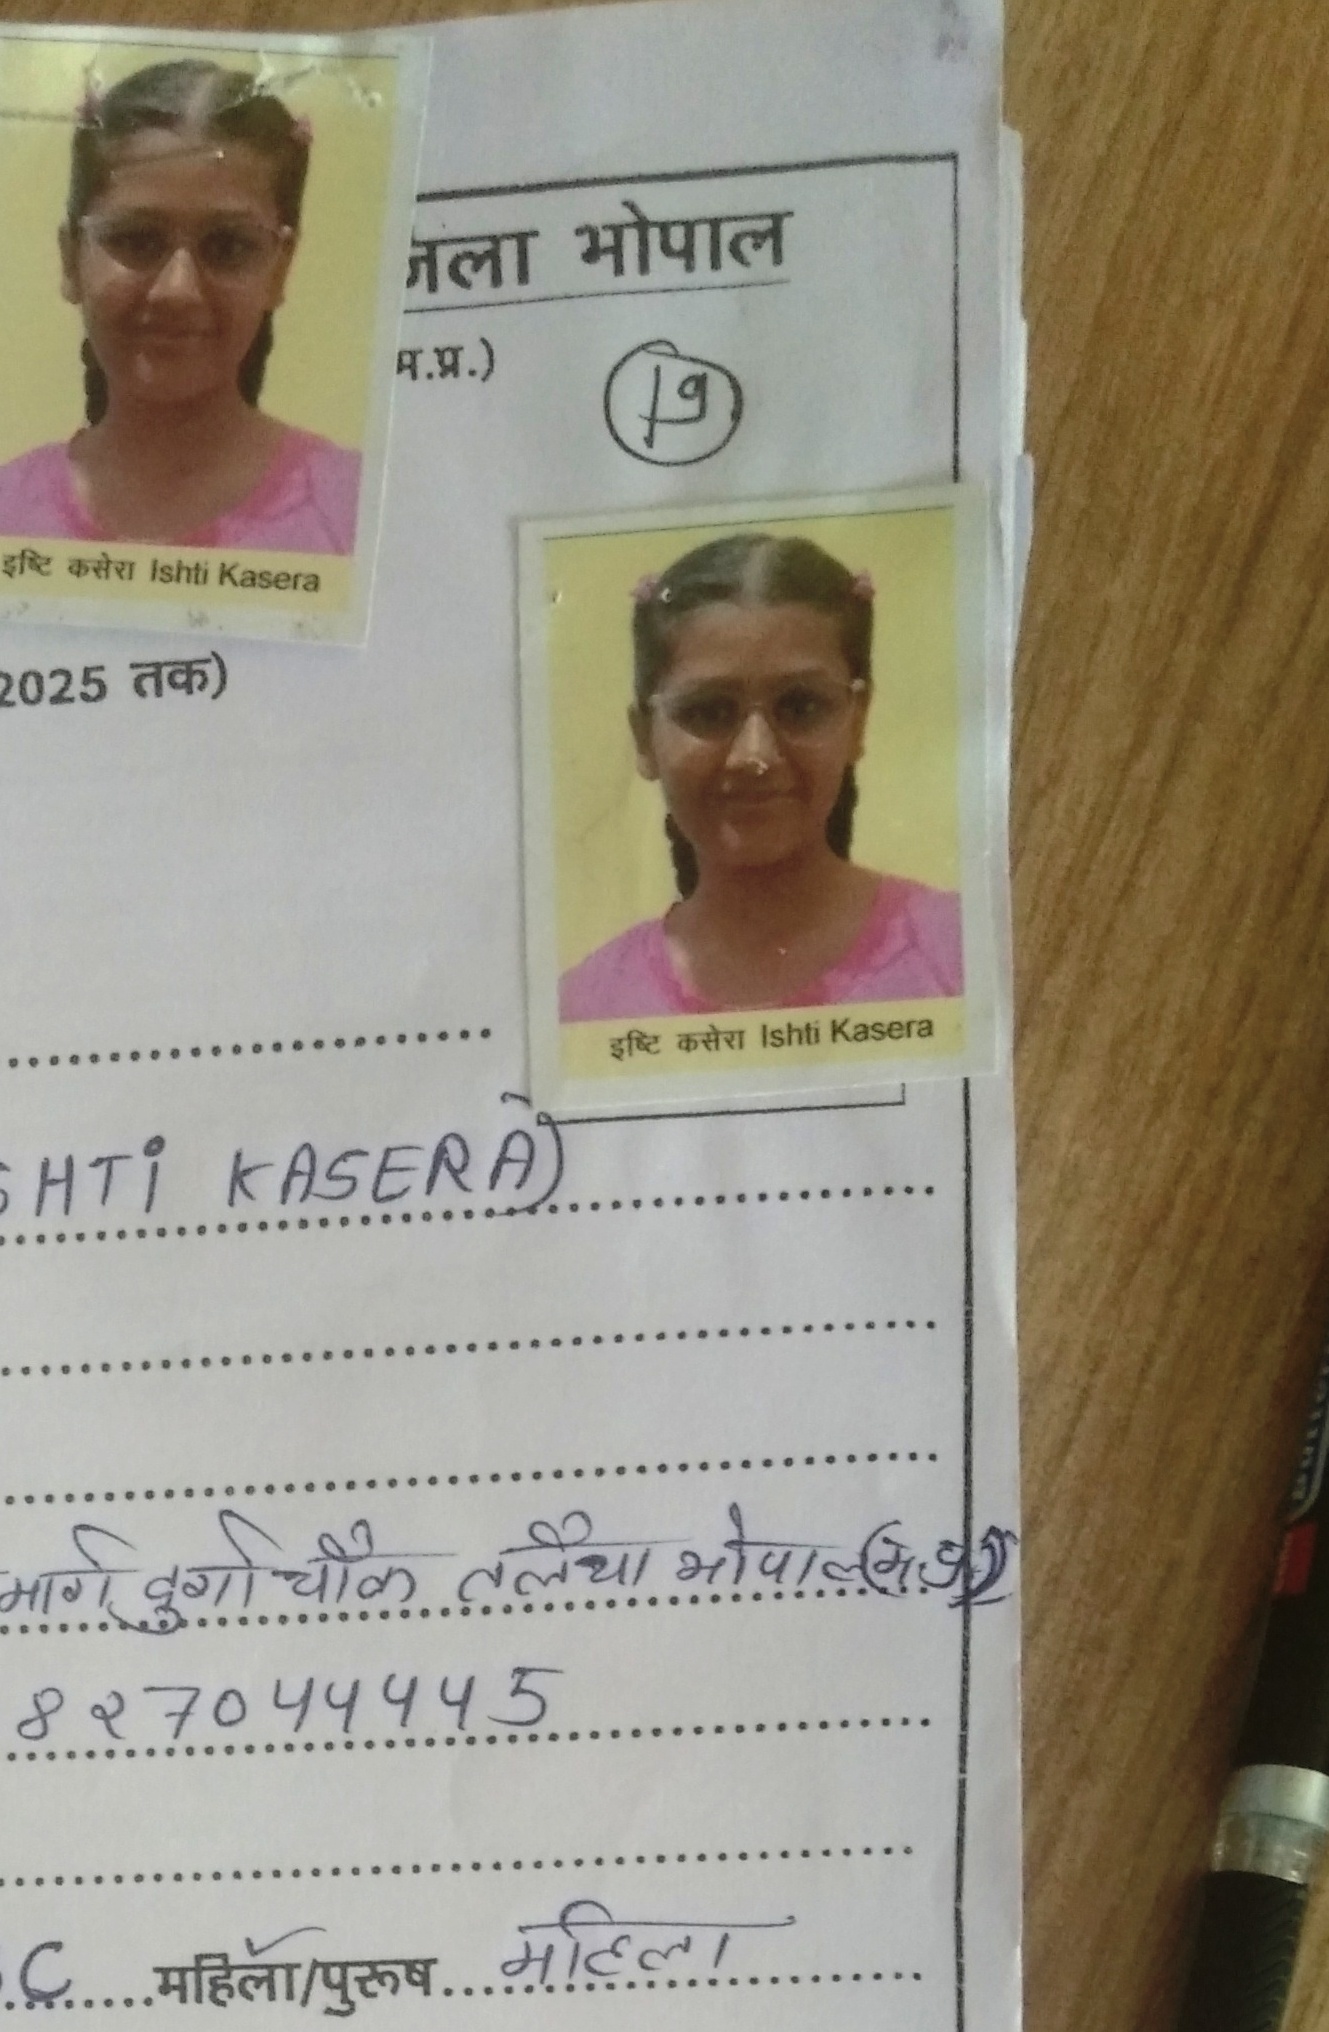 जिला भोपाल
म.प्र.)
इष्टि कसेरा Ishti Kasera
2025 तक)
इष्टि कसेरा Ishti Kasera
SHTi KASERA)
मार्ग, दुर्गा चौक तलैया भोपाल (म.प्र.)
8270444445
C महिला/पुरूष महिला